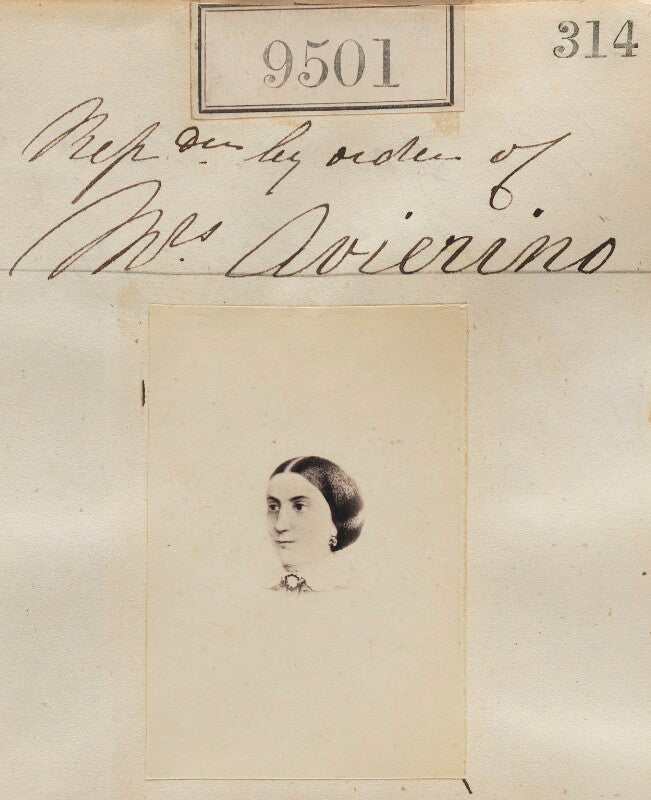 9501
314
Rep dn by order of
Mrs. Avierino